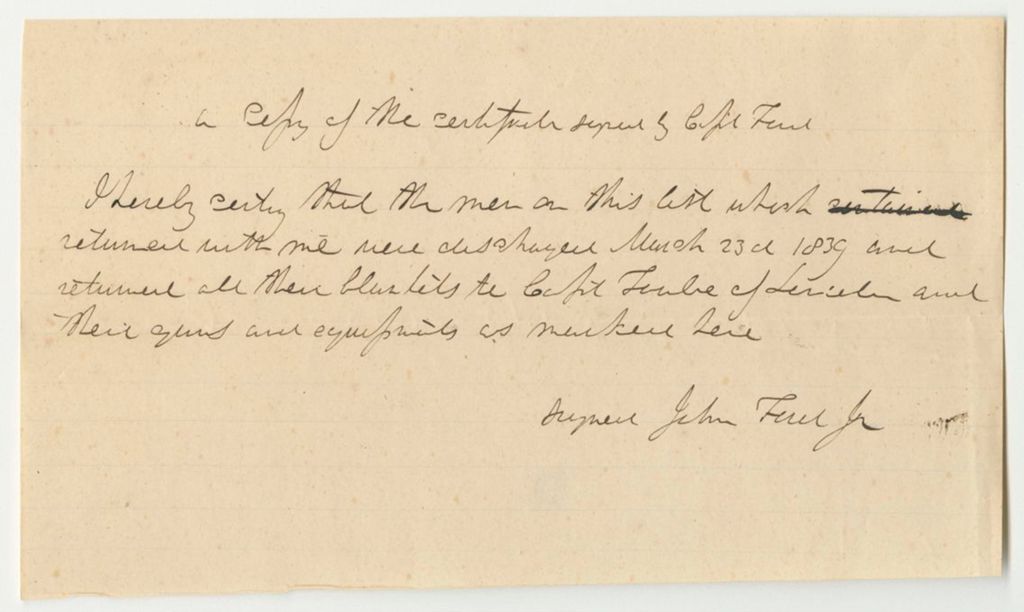 a Copy of the certificate signed by Capt Ford
I hereby certify that the men on this list which
returned with me were discharged March 23d 1839 and
returned all their blankets to Capt Towle of Lincoln and
their guns and equipments as marked here
signed John Ford Jr